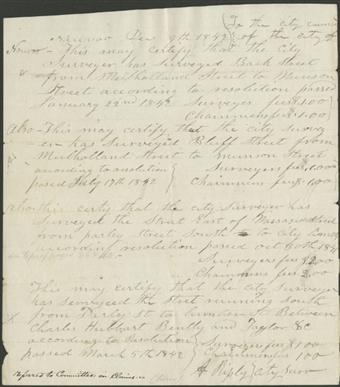 Nauvoo Dec 9th 1842 { To the city council
of the city of
Nauvoo - This may certify that the City
Surveyer has Surveyed Back Street
from Mulholland Street to Munson
Street according to resolution passed
January 22nd 1842 Surveyers fees $1.00
Chainmens fees $1.00
Also - This may certify that the City Survey
er has Surveyed Bluff Street from
Mulholland Street to Munson Street
according to resolution Surveyors fees 1.00
passed July 19th 1842 Chainmens fees 1.00
Also this certify that the city Surveyer has
Surveyed the Street East of Street
from parley Street South to City
according resolution passed oct 1842
Surveyers fees 2.00
Chainmens fees 2.00
This may certify that the City Surveyer
has Surveyed the Street running South
from Street to Between
Charles Hubbart Bently and Taylor &c
according to Resolution
passed March 5th 1842 Surveyers fees 1.00
Chainmens fees 1.00
referred to Committee on Claims City Surv